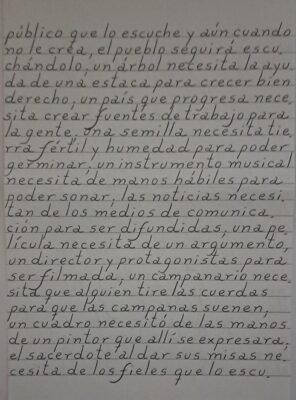 público que lo escuche y aún cuando
no le crea, el pueblo seguirá escu.
chándolo; un árbol necesita la ayu
da de una estaca para crecer bien
derecho, un país que progresa nece.
sita crear fuentes de trabajo para
la gente. una semilla necesita tie,
rra fértil y humedad para poder
germinar; un instrumento musical
necesita de manos hábiles para
poder sonar, las noticias necesi.
tan de los medios de comunica.
ción para ser difundidas, una pe,
lícula necesita de un argumento,
un director y protagonistas para
ser filmada, un campanario nece.
sita que alguien tire las cuerdas
para que las campanas suenen,
un cuadro necesitó de las manos
de un pintor que allí se expresara,
el sacerdote al dar sus misas ne.
cesita de los fieles que lo escu.